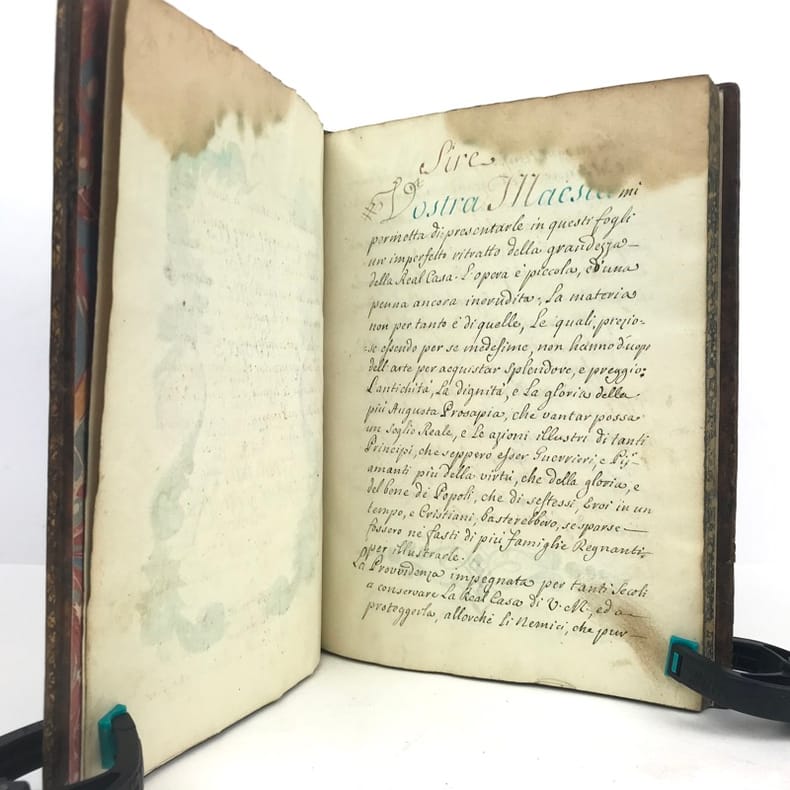 Sire
Vostra Maestà mi
permetta di presentarle in questi fogli
un' imperfetto ritratto della grandezza
della Real Casa. L'opera è piccola, e d'una
penna ancora inerudita; La materia
non per tanto è di quelle, Le quali, prezio-
se essendo per se medesime, non hanno d'uopo
dell'arte per acquistar splendore, e preggio:
L'antichità, La dignità, e La gloria della
più Augusta Prosapia, che vantar possa
un soglio Reale, e Le azioni illustri di tanti
Principi, che seppero esser Guerrieri, e Pij,
amanti più della virtù, che della gloria, e
del bene de Popoli, che di sestessi, Eroi in un
tempo, e Cristiani, basterebbero, se sparse
fossero ne fasti di più famiglie Regnanti
per illustrarle.
La Provvidenza impegnata per tanti secoli
a conservare La Real Casa di V. M., ed a
proteggerla, allorchè li Nemici, che pur